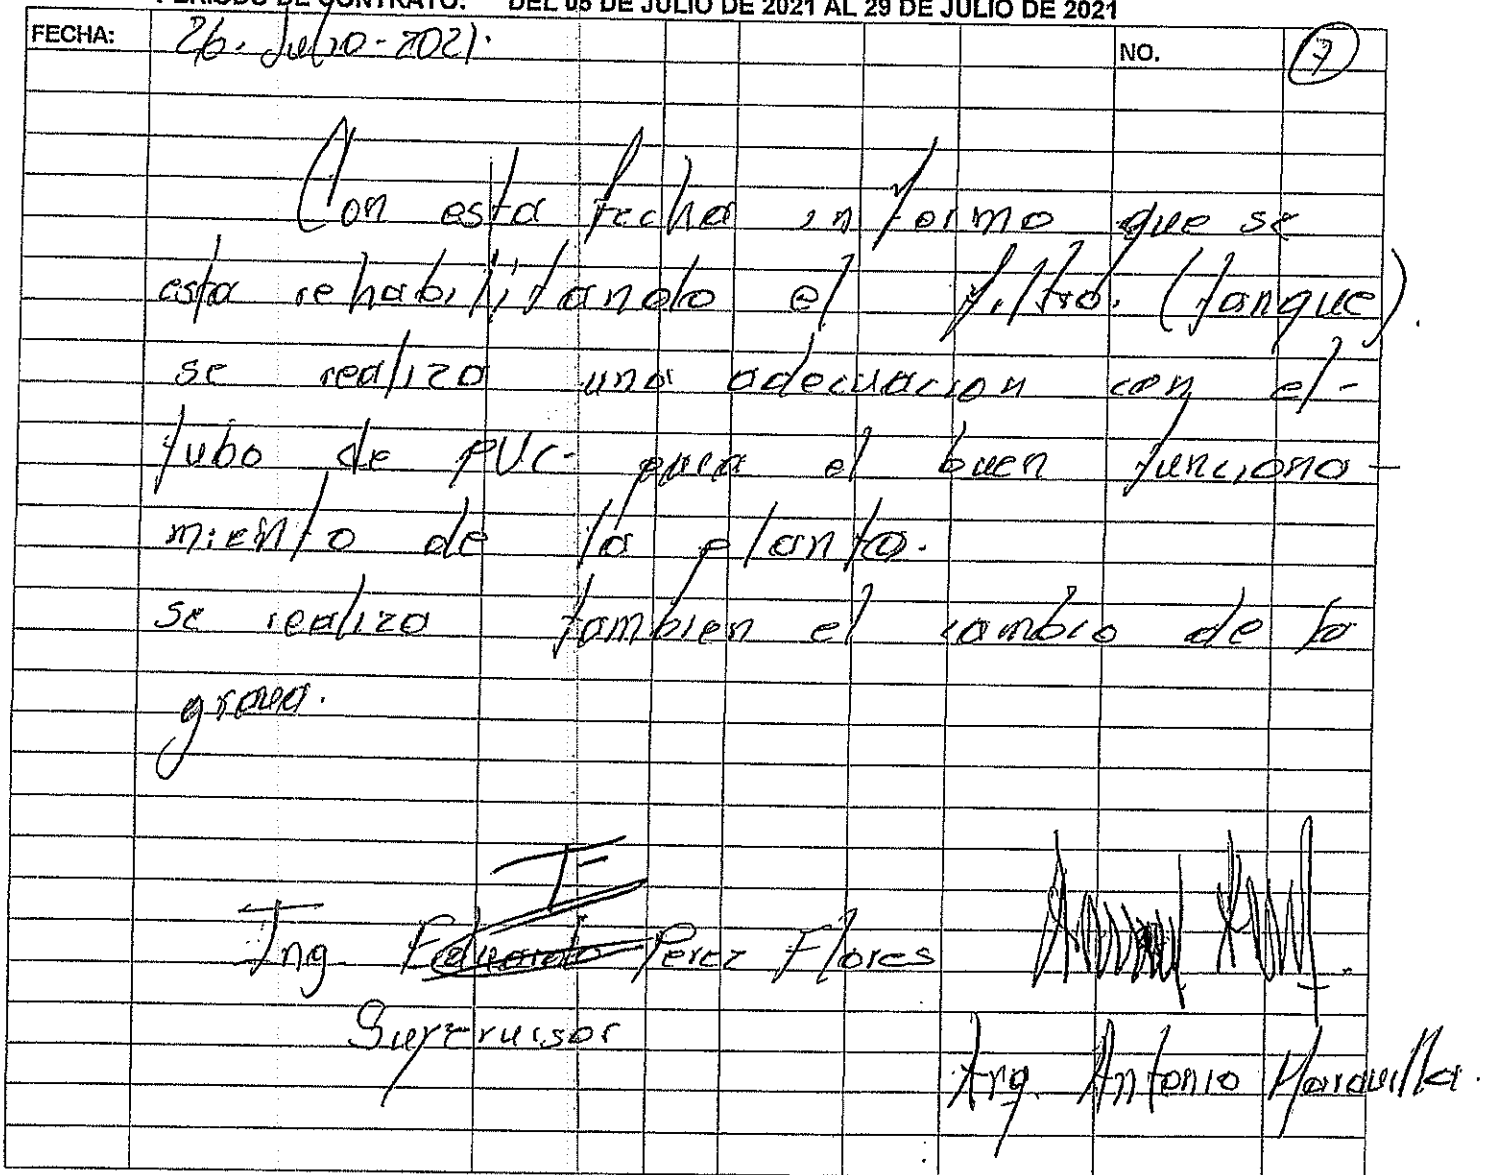 PERIODO DE CONTRATO: DEL 05 DE JULIO DE 2021 AL 29 DE JULIO DE 2021
FECHA: 26. Julio - 2021. NO. 7
Con esta fecha informo que se
esta rehabilitando el filtro. (tanque).
se realizo una adecuacion con el -
tubo de PVC- para el buen funciona -
miento de la planta.
se realizo tambien el cambio de la
grava.
Ing Eduardo Perez Flores
Supervisor
Arq. Antonio Maravilla.